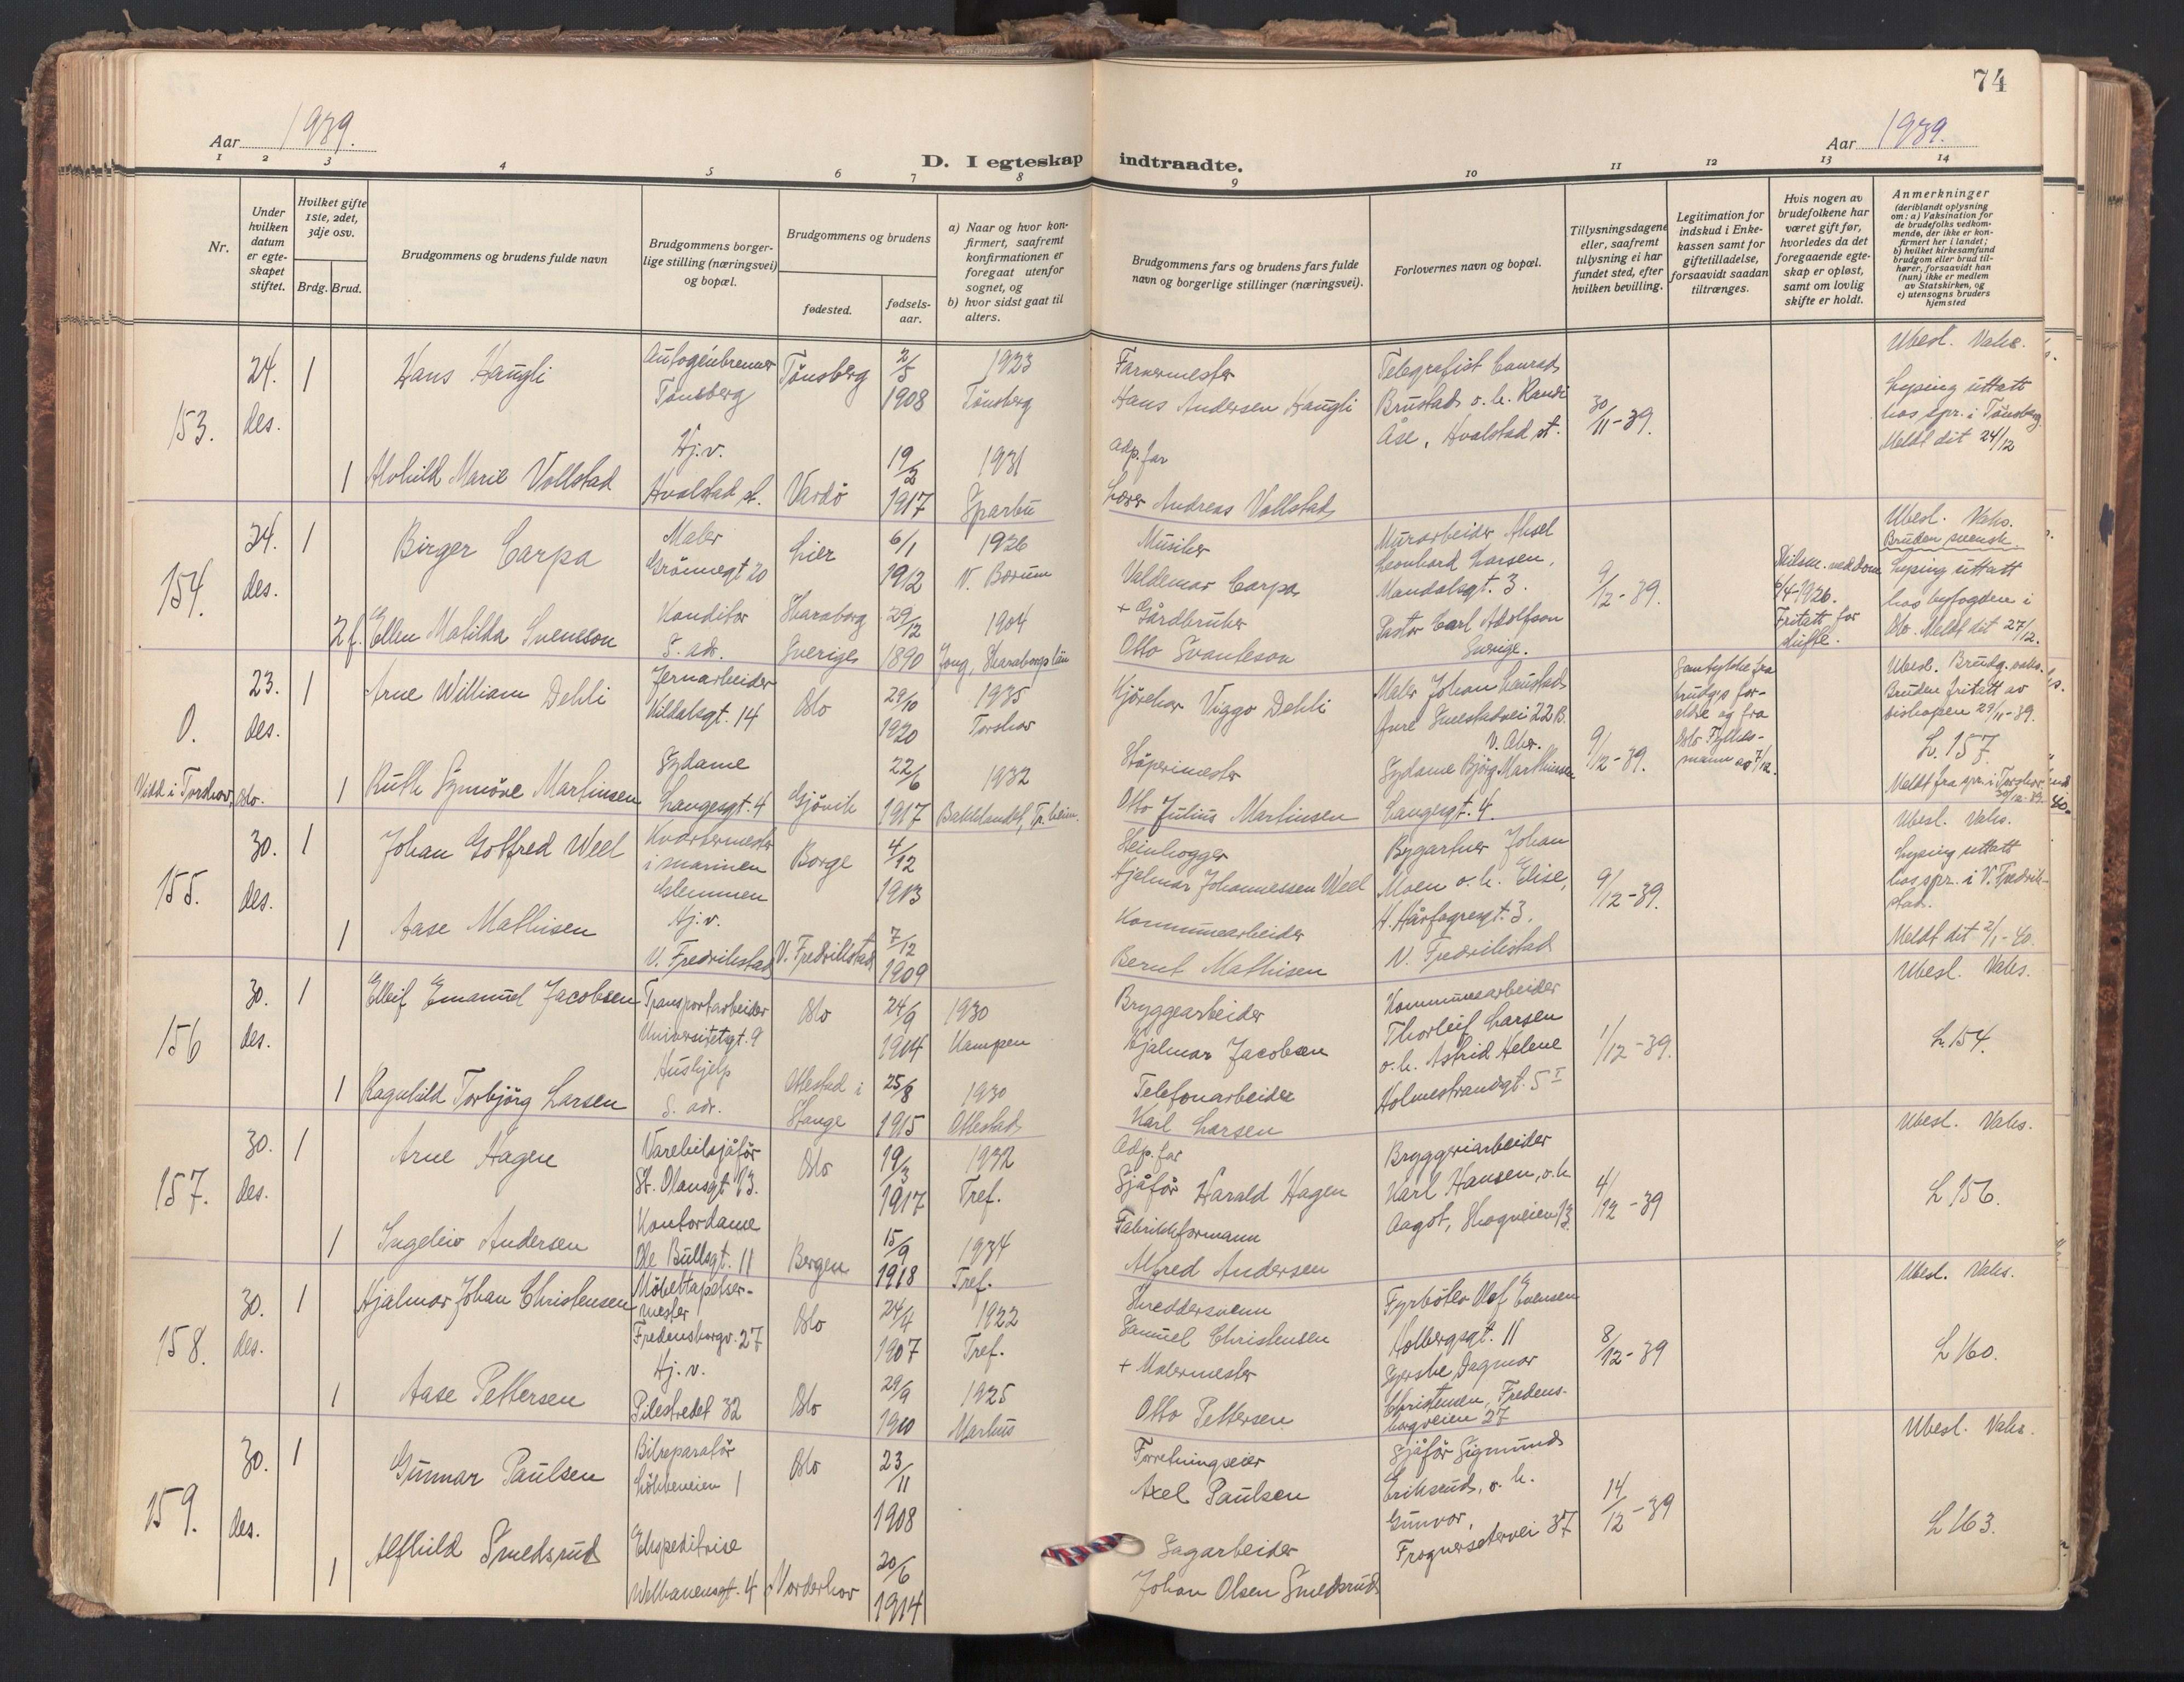 74
Aar 1939.
Aar 1939.
D. I egteskap indtraadte.
1 2 3 4 5 6 7 8 9 10 11 12 13 14
Nr.
Under hvilken datum er egte-skapet stiftet.
Hvilket gifte 1ste, 2det, 3dje osv.
Brdg. Brud.
Brudgommens og brudens fulde navn
Brudgommens borger-lige stilling (næringsvei) og bopæl.
Brudgommens og brudens
fødested.
fødsels-aar.
a) Naar og hvor kon-firmert, saafremt konfirmationen er foregaat utenfor sognet, og
b) hvor sidst gaat til alters.
Brudgommens fars og brudens fars fulde navn og borgerlige stillinger (næringsvei).
Forlovernes navn og bopæl.
Tillysningsdagene eller, saafremt tillysning ei har fundet sted, efter hvilken bevilling.
Legitimation for indskud i Enke-kassen samt for giftetilladelse, forsaavidt saadan tiltrænges.
Hvis nogen av brudefolkene har været gift før, hvorledes da det foregaaende egte-skap er opløst, samt om lovlig skifte er holdt.
Anmerkninger
(deriblandt oplysning om: a) Vaksination for de brudefolks vedkom-mende, der ikke er kon-firmert her i landet; b) hvilket kirkesamfund brudgom eller brud til-hører, forsaavidt han (hun) ikke er medlem av Statskirken, og c) utensogns bruders hjemsted
153.
24. des.
1
Hans Haugli
Autogenbrenner
Tönsberg
Tönsberg
2/5 1908
1923
Tönsberg
Farvermester
Hans Andersen Haugli
Telegrafist Conrad
Brustad o.h. Randi
Åse, Hvalstad st.
30/11-39.
Ubesl. Vaks.
Lysing uttatt
hos spr. i Tönsberg
Meldt dit 24/12
1
Alvhild Marie Vollstad
Hj.v.
Hvalstad st.
Vardö
19/2 1917
1931
Sparbu
Adp. far
Lærer Andreas Vollstad
154.
24. des.
1
Birger Carpa
Maler
Grönnegt 20
Lier
6/1 1912
1926
V. Bærum
Musiker
Valdemar Carpa
Murarbeider Aksel
Leonhard Larsen,
Mandalsgt. 3.
9/12-39.
Skilsm. ved dom
6/4-1926.
Fritatt for
skifte.
Ubesl. Vaks.
Bruden svensk.
Lysing uttatt
hos byfogden i
Oslo. Meldt dit 27/12.
2 f.
Ellen Matilda Svenson
Konditor
S. adr.
Skaraborg
Sverige
29/12 1890
1904
Jong, Skaraborgs län
+ Gårdbruker
Otto Svanteson
Pastor Carl Adolfson
Sverige.
0.
Viet i Torshov, Oslo.
23. des.
1
Arne William Dehli
Jernarbeider
Uildalsgt. 14
Oslo
29/10 1920
1935
Torshov
Kjörekar Viggo Dehli
Maler Johan Lanstad
Arne Sneestadvei 22B.
V. Aker.
9/12-39.
Samtykke fra
brudgs for-
eldre og fra
Oslo Fylkes-
mann av 7/12.
Ubesl. Brudg. vaks.
Bruden fritatt av
biskopen 29/11-39.
L. 157.
Meldt fra spr. i Torshov
30/12-39.
1
Ruth Synnöve Martinsen
Sydame
Langesgt. 4
Gjövik
22/6 1917
1932
Bakklandet, Tr.heim.
Stöperimester
Otto Julius Martinsen
Sydame Björg Marthinsen
Langesgt. 4.
155.
30. des.
1
Johan Gotfred Weel
Kvartermester
i marinen
Glemmen
Borge
4/12 1913
Steinhogger
Hjalmar Johannessen Weel
Bygartner Johan
Moen o.h. Elise,
H. Hårfagresgt. 3.
V. Fredrikstad
9/12-39.
Ubesl. Vaks.
Lysing uttatt
hos spr. i V. Fredrik-
stad.
Meldt dit 2/1-40.
1
Aase Mathisen
Hj.v.
V. Fredrikstad
V. Fredrikstad
7/12 1909
Kommunearbeider
Bernt Mathisen
156
30. des.
1
Elleif Emanuel Jacobsen
Transportarbeider
Universitetsgt. 9
Oslo
24/9 1904
1930
Kampen
Bryggearbeider
Hjalmar Jacobsen
Kommunearbeider
Thorleif Larsen
o.h. Astrid Helene
Holmestrandgt. 5 I
1/12-39.
Ubesl. Vaks.
L. 154.
1
Ragnhild Torbjörg Larsen
Hushjelp
S. adr.
Ottestad i
Stange
25/8 1915
1930
Ottestad
Telefonarbeider
Karl Larsen
157.
30. des.
1
Arne Hagen
Varebilsjåför
St. Olavsgt 13.
Oslo
19/3 1917
1932
Tref.
Adp. far
Sjåför Harald Hagen
Bryggeriarbeider
Karl Hansen, o.h.
Aagot, Skogveien 13
4/12-39
Ubesl. Vaks.
L 156.
1
Ingeleiv Andersen
Kontordame
Ole Bullsgt. 11
Bergen
15/9 1918
1934
Tref.
Fabrikkformann
Alfred Andersen
158.
30. des.
1
Hjalmar Johan Christensen
Möbeltapetser-
mester
Fredensborgv. 27
Oslo
24/4 1907
1922
Tref.
Skreddersvenn
Samuel Christensen
Fyrböter Olof Evensen
Holbergsgt. 11
Syerske Dagmar
Christensen, Fredens-
borgveien 27
8/12-39
Ubesl. Vaks.
L 160.
1
Aase Pettersen
Hj.v.
Pilestredet 32
Oslo
29/9 1910
1925
Markus
+ Malermester
Otto Pettersen
159.
30. des.
1
Gunnar Paulsen
Bilreparatör
Lökkeveien 1
Oslo
23/11 1908
Forretningseier
Axel Paulsen
Sjåför Sigmund
Eriksrud, o.h.
Gunvor,
Frognersetervei 37
14/12-39
Ubesl. Vaks.
L 163.
1
Alfhild Smedsrud
Ekspeditrise
Welhavensgt. 4
Norderhov
20/6 1914
Sagarbeider
Johan Olsen Smedsrud